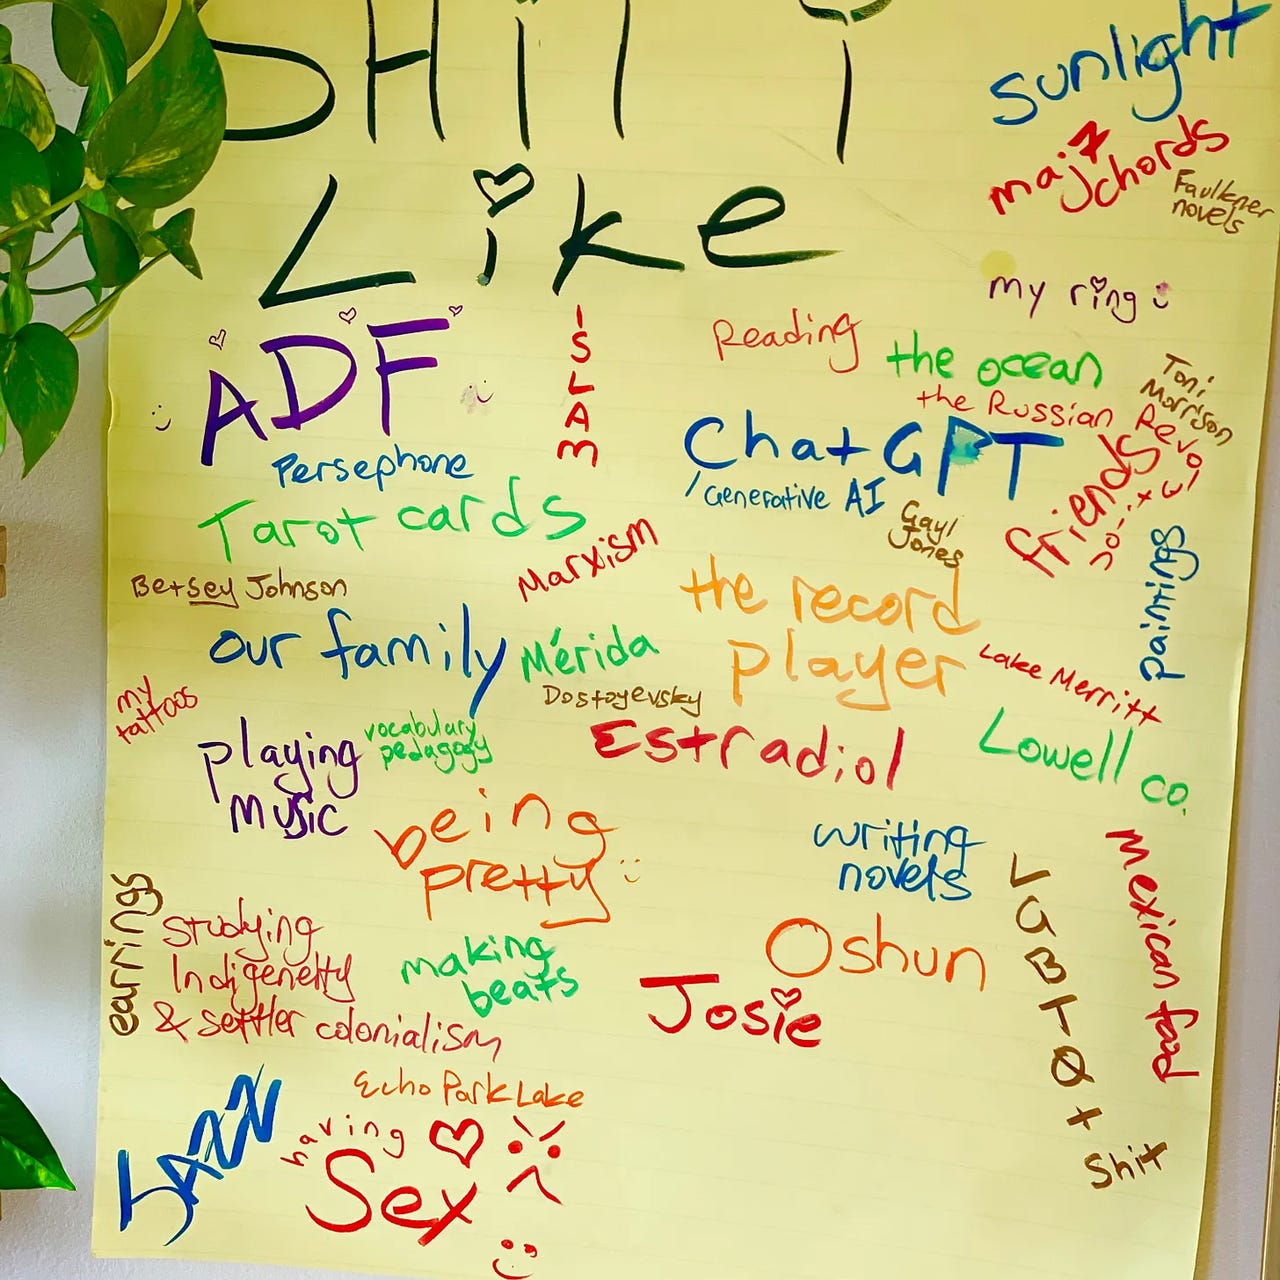 SHIT I
Like
sunlight
maj7
chords
Faulkner
novels
my ring
ADF
ISLAM
Reading
the ocean
Toni
Morrison
the Russian Revolution
ChatGPT
/Generative AI
friends
Persephone
Tarot cards
Gayl
Jones
Marxism
paintings
Betsey Johnson
the record
player
our family
Mérida
Lake Merritt
Dostoyevsky
my
tattoos
vocabulary
pedagogy
Estradiol
Lowell co.
playing
music
being
pretty
writing
novels
Mexican food
LGBTQ+
Shit
earrings
Studying
Indigeneity
& settler colonialism
making
beats
Oshun
Josie
Echo Park Lake
JAZZ
having
Sex